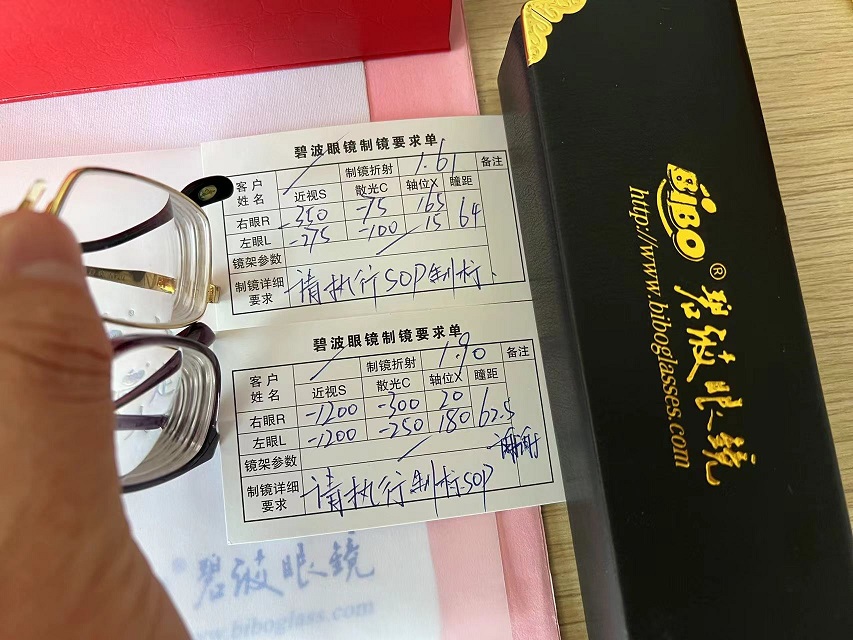 碧波眼镜制镜要求单
客户姓名 制镜折射 1.61 备注
近视S 散光C 轴位X 瞳距
右眼R -350 -75 165 64
左眼L -275 -100 15
镜架参数
制镜详细要求 请执行SOP制标.
碧波眼镜制镜要求单
客户姓名 制镜折射 1.90 备注
近视S 散光C 轴位X 瞳距
右眼R -1200 -300 20 62.5
左眼L -1200 -250 180
镜架参数 谢谢
制镜详细要求 请执行制标SOP
BiBO® 碧波眼镜
http://www.biboglasses.com
碧波眼镜
www.biboglass.com